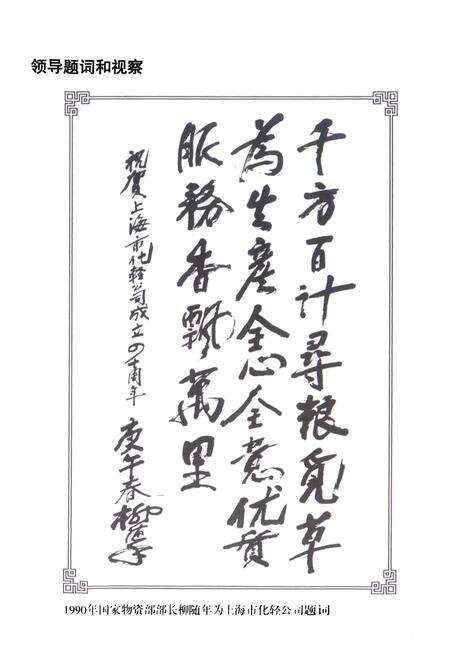 领导题词和视察
千方百计寻粮觅草
为生产全心全意优质
服务香飘萬里
祝贺上海市化轻公司成立四十周年
庚午春柳随年
1990年国家物资部部长柳随年为上海市化轻公司题词